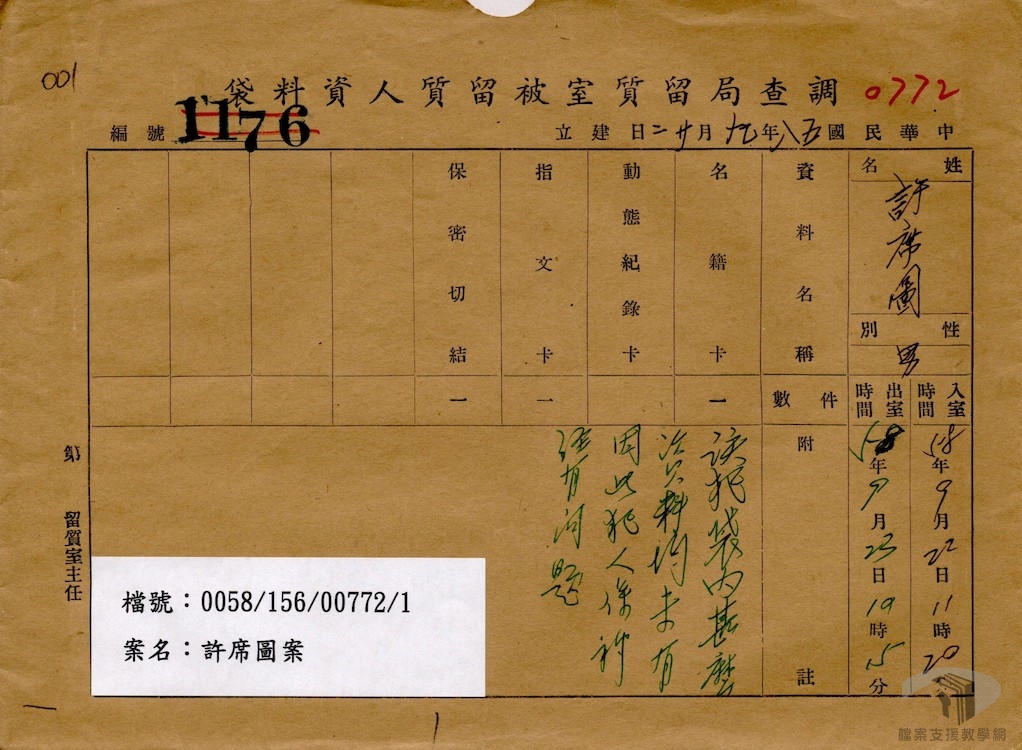 001
調查局留質室被留質人資料袋
0772
中華民國五八年九月廿二日建立
編號 1176
姓名
許席圖
性別
男
入室時間
58年9月22日11時20分
出室時間
58年9月23日19時15分
資料名稱
件數
名籍卡
一
動態紀錄卡
指文卡
一
保密切結
一
附註
該犯袋内甚麼
資料均未有
因此犯人係神
經有問題
第 留質室主任
檔號：0058/156/00772/1
案名：許席圖案
檔案支援教學網